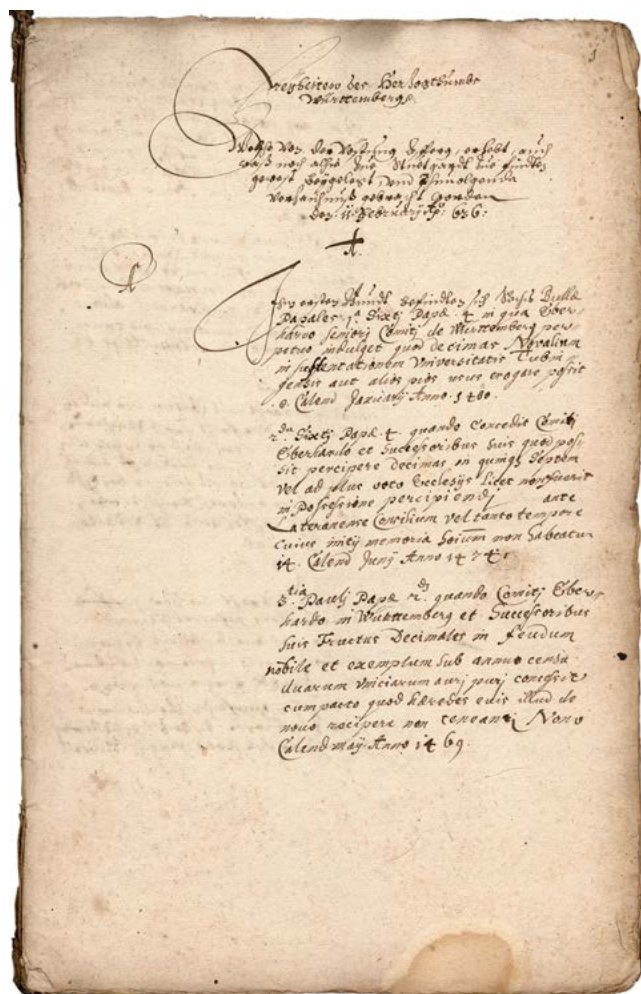 1
Freyheiten des Herzogthumbs
Württemberg.
Welche von der Vöstung Asperg, erhebt, auch
noch alhie zue Stuetgardt zue finden
gewest beygelegt und
gebracht worden
den 11 February Ao. 636.
A.
A
Im ersten Bundt befinden sich Sechs Bullæ
Papales. 1.a Sixtj Papæ. 4. in qua Eber-
hardo seniorj Comitj de Württemberg per-
petuo indulget quod decimas Novalium
in sustentationem Vniversitatis Tubin-
gensis aut alios pios usus erogare possit
8. Calend Januarij Anno. 1480.
2.da Sixtj Papæ 4. quando concedit Comitj
Eberhardo et Successoribus suis quod pos-
sit percipere decimas in quinq3 septem
vel ad plus octo Ecclesijs licet non fuerit
in Possessione percipiendj ante
Lateranense Concilium vel tanto tempore
cuius initij memoria hominum non habeatur
14. Calend Junij Anno 1474.
3.tia Paulj Papæ 2.dj quando Comitj Eber-
hardo in Württemberg et Successoribus
suis Fructus Decimales in feudum
nobile et exemptum sub annuo censu
duarum unciarum aurj purj concessit
cum pacto quod hæredes eius illud de
novo recipere non teneantur Nono
Calend maij Anno 1469.